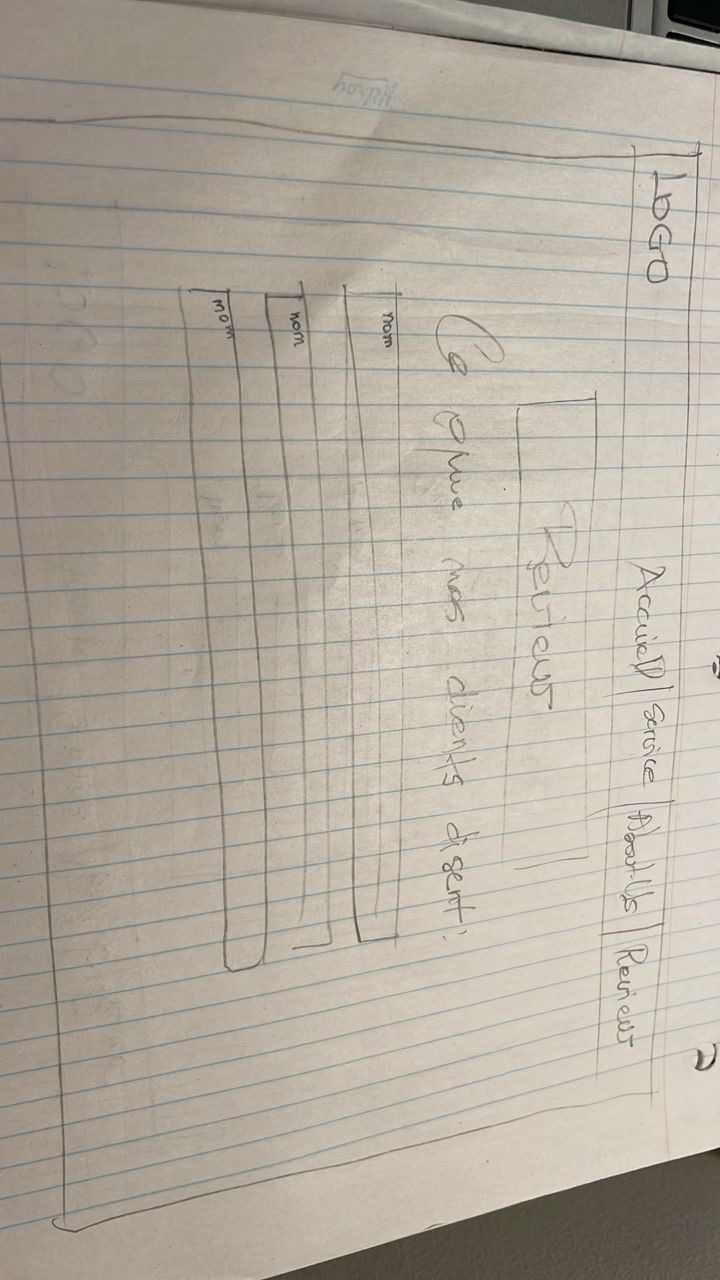 LOGO Accueil | Service | About-Us | Review
Review
Ce que nos clients disent:
nom
nom
nom